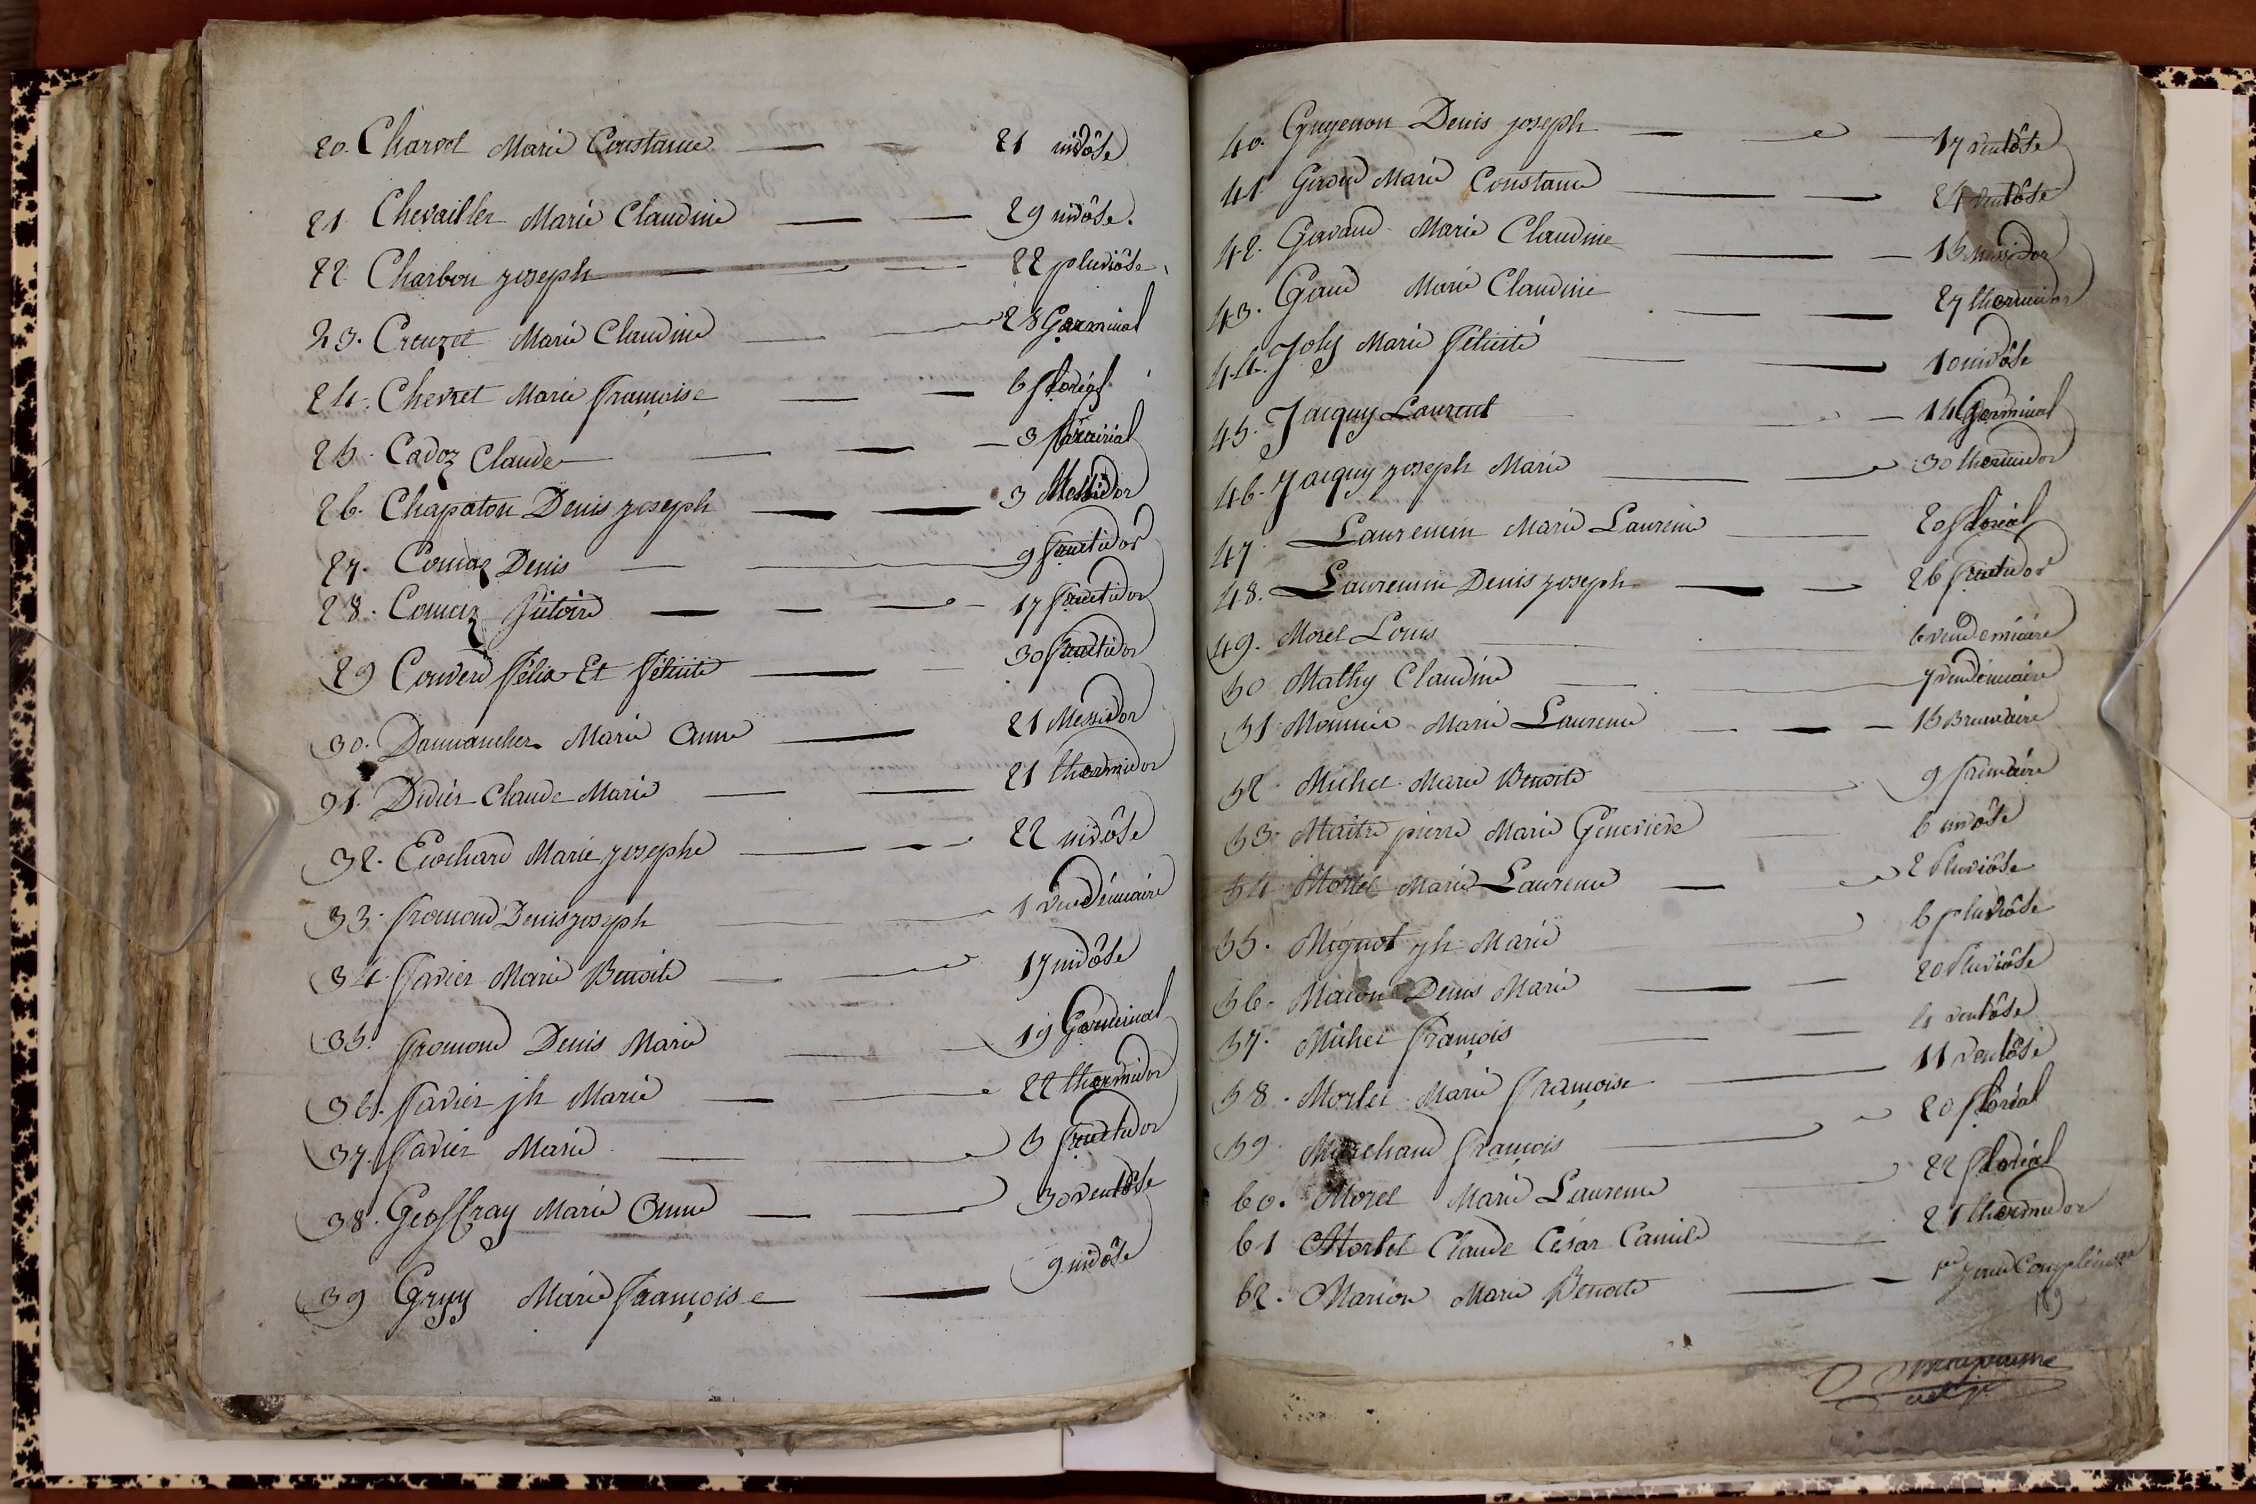 20. Charvet Marie Constance 21 nivôse
21. Chevaillier Marie Claudine 29 nivôse.
22. Charbon joseph 22 pluviôse
23. Creuzet Marie Claudine 28 Germinal
24. Chevret Marie françoise 6 floréal
25. Cadoz Claude 3 prairial
26. Chapaton Denis joseph 3 Messidor
27. Comaz Denis 9 fructidor
28. Comaz Victoire 17 fructidor
29 félix Et félicité 30 fructidor
30. Marie Anne 21 Messidor
31. Didier Claude Marie 21 thermidor
32. Ecochard Marie josephe 22 nivôse
33. fromond Denis joseph 1 vendémiaire
34. favier Marie Benoite 17 nivôse
35. fromond Denis Marie 19 Germinal
36. favier jh Marie 22 thermidor
37. favier Marie 5 fructidor
38. Geoffray Marie Anne 30 ventôse
39 Gruy Marie françoise 9 nivôse
40. Guyenon Denis joseph 17 ventôse
41 Marie Constance 24 ventôse
42. Gavand Marie Claudine 15 messidor
43. Marie Claudine 27 thermidor
44. Joly Marie félicité 10 nivôse
45. Jacquy Laurent 14 Germinal
46. Jacquy joseph Marie 30 thermidor
47. Laurencin Marie Laurence 20 floréal
48. Laurencin Denis joseph 26 fructidor
49. Morel Louis 6 vendémiaire
50 Mathy Claudine 7 vendémiaire
51 Monnier Marie Laurence 15 Brumaire
52. Michel Marie Benoite 9 frimaire
53. Maitre pierre Marie Genevieve 6 nivôse
54 Morlet Marie Laurence 2 Pluviôse
55. Mignot jh Marie 6 pluviôse
56. Macon Denis Marie 20 Pluviôse
57. Michel françois 4 ventôse
58. Morlet Marie françoise 11 ventôse
59. Marchand françois 20 floréal
60. Morel Marie Laurence 22 floréal
61 Morlet Claude César Camile 21 thermidor
62. Marion Marie Benoite 1er jour Complémre